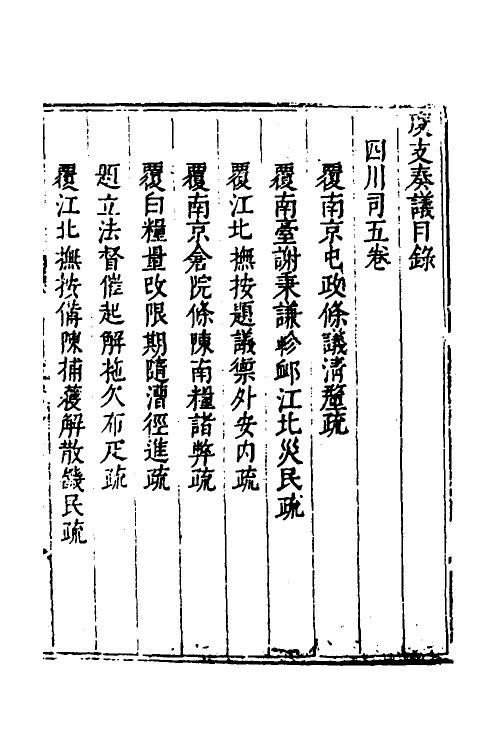 度支奏議目錄
四川司五卷
覆南京屯政條議清釐疏
覆南臺謝秉謙軫卹江北災民疏
覆江北撫按題議禦外安内疏
覆南京倉院條陳南糧諸弊疏
覆白糧量改限期隨漕徑進疏
題立法督催起解拖欠布疋疏
覆江北撫按備陳捕獲解散饑民疏